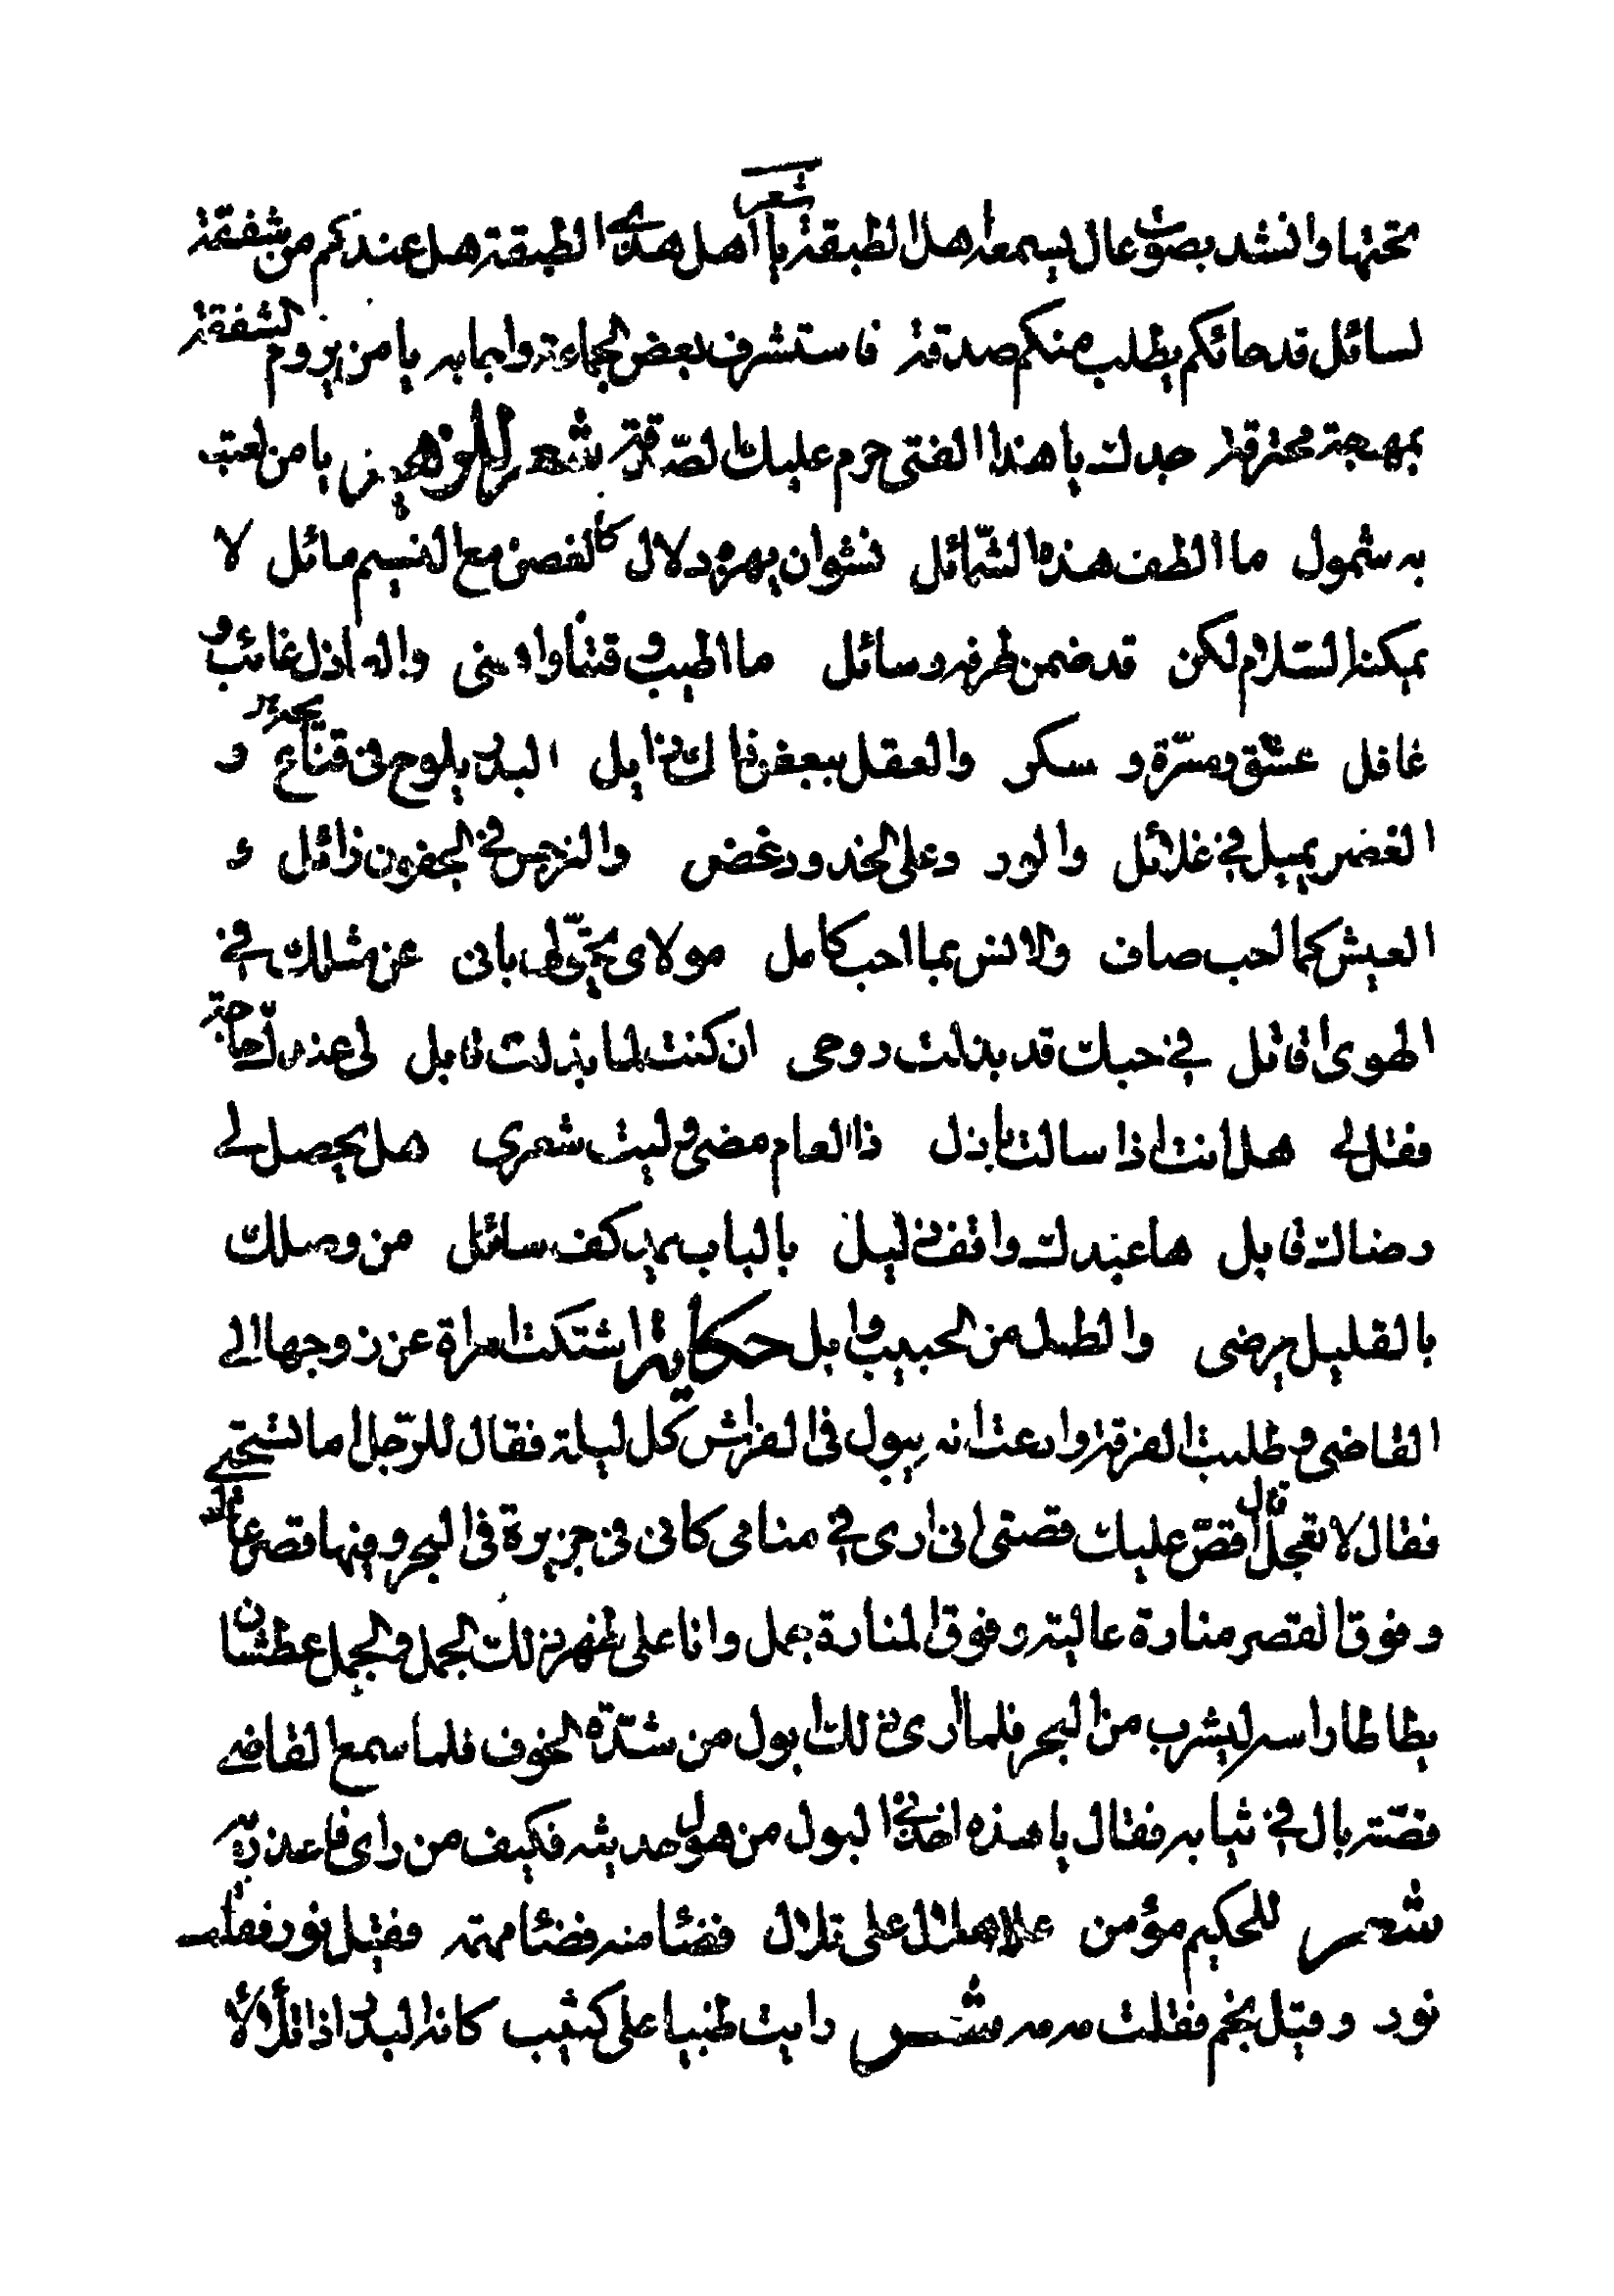 تحتها وانشد بصوت عال يسمعه اهل الطبقة شعر يا اهل هذى الطبقة هل عندكم من شفقة
لسائل قد جائكم يطلب منكم صدقة فاستشرف بعض الجماعة واجابه يا من يروم الشفقة
بمهجة محترقة جدك يا هذا الفتى حرم عليك الصّدقة شعر للزهير يا من لعبت
به شمول ما الطف هذه الشّمائل نشوان يهزه دلال كالغصن مع النسيم مائل لا
يمكنه السّلام لكن قد ضمن طرفه رسائل ما اطيب وقتنا واهنى والعاذل غائب و
غافل عشق ومسرّة وسكر والعقل ببعض ذاك ذايل البدر يلوح فى قناع و
الغصن يميل فى غلائل والورد على الخدود غض والنرجس فى الجفون ذائل و
العيش كما احب صاف والانس بما احب كامل مولاى يحق لى بانى عن مثلك فى
الهوى اقاتل فى حبك قد بذلت روحى ان كنت لما بذلت قابل لى عندك حاجة
فقل لى هل انت اذا سالت باذل ذا العام مضى وليت شعرى هل يحصل لى
رضاك قابل ها عبدك واقف ذليل بالباب يمد كف سائل من وصلك
بالقليل يرضى والطل من الحبيب وابل حكاية اشتكت امراة عن زوجها الى
القاضى وطلبت الفرقة وادعت انه يبول فى الفراش كل ليلة فقال للرّجل اما تستحيى
فقال لا تعجل قال اقصّ عليك قصتى انى ارى فى منامى كانى فى جزيرة فى البحر وفيها قصر عال
وفوق القصر منارة عالية وفوق المنارة جمل وانا على ظهر ذلك الجمل والجمل عطشان
يطاطا راسه ليشرب من البحر فلما ارى ذلك ابول من شدّة الخوف فلما سمع القاضى
قصّته بال فى ثيابه فقال يا هذه اخذنى البول من هول حديثه فكيف من راى فاعذريه
شعر للحكيم مؤمن علا هلال على تلال فضئا منه فضئا مهمه فقيل نور فقلت
نور وقيل نجم فقلت مه مه شعر رايت ظبيا على كثيب كانه البدر اذا تلألأ